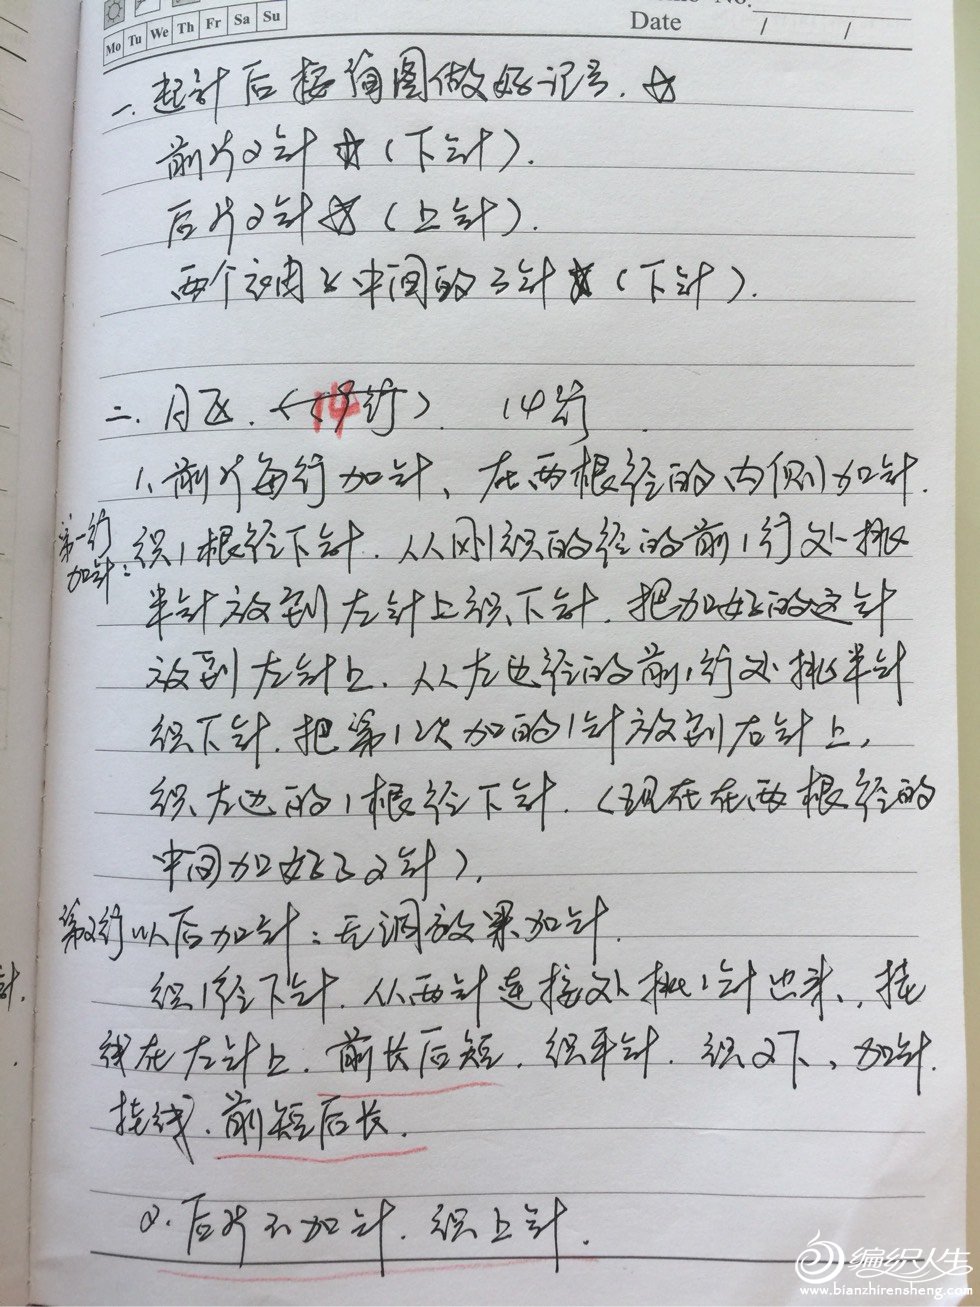 Mo Tu We Th Fr Sa Su
No.
Date / /
一.起针后按简图做好记号.☆
前片2针☆(下针).
后片2针☆(上针).
两个之中间的3针☆(下针).
二.A区. 14行
1、前片每行加针、在两根径的内侧加针.
第一行
加针:
织1根径下针.从刚织的径的前1行处挑
半针放到左针上织下针.把加好的这针
放到左针上.从左边径的前1行处挑半针
织下针.把第1次加的1针放到右针上,
织左边的1根径下针.(现在在两根径的
中间加好了2针).
第2行以后加针:无洞放果加针.
织1径下针.从两针连接处挑1针出来、挂
线在左针上.前长后短.织平针.织2下、加针.
挂线.前短后长.
2.后片不加针.织上针.
针.
编织人生
www.bianzhirensheng.com